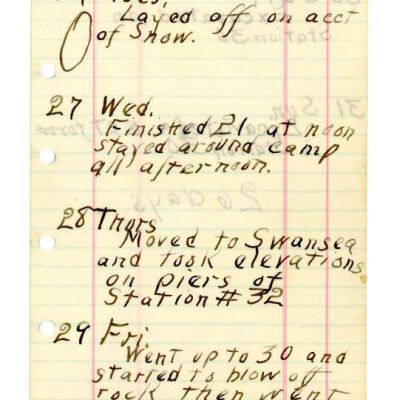 Tues.
Layed off on acct
of Snow.
27 Wed.
Finished 21 at noon
stayed around camp
all afternoon.
28 Thurs
Moved to Swansea
and took elevations
on piers of
Station # 32
29 Fri.
Went up to 30 and
started to blow off
rock then went